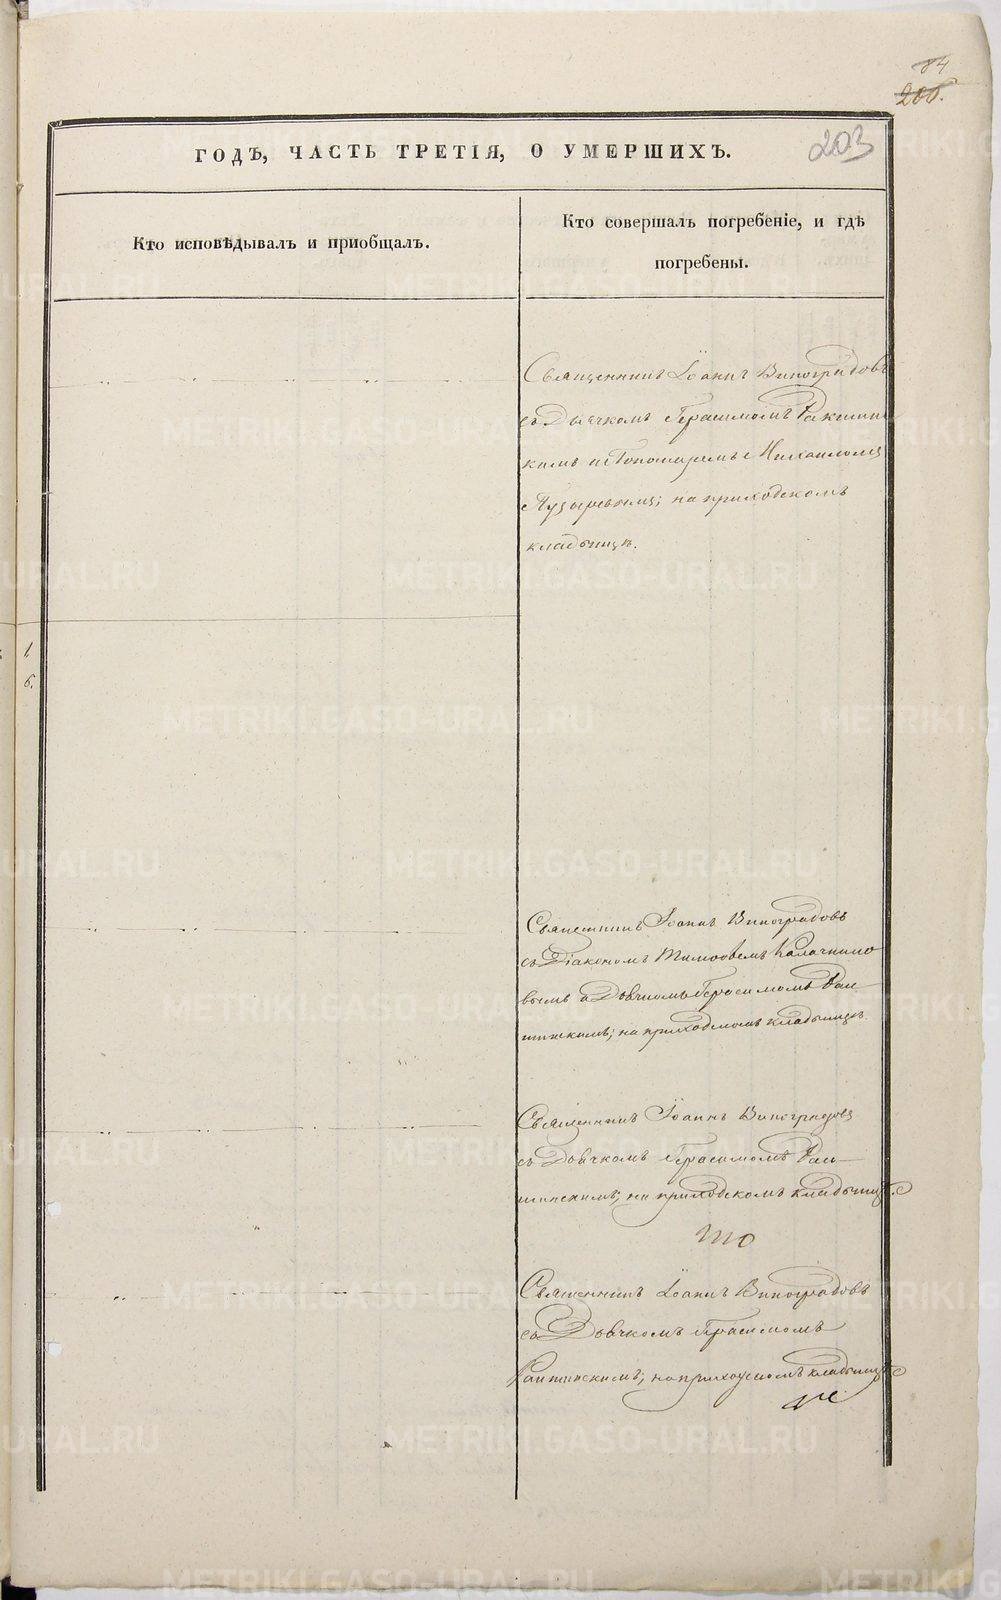 84
206.
203
ГОДЪ, ЧАСТЬ ТРЕТІЯ, О УМЕРШИХЪ.
Кто исповѣдывалъ и приобщалъ.
Кто совершалъ погребеніе, и гдѣ
погребены.
Священникъ Іоаннъ Виноградовъ
съ Дьячкомъ Герасимомъ
кимъ и Пономаремъ Михаиломъ
Пузыревымъ; на приходскомъ
кладбищѣ.
1
6.
Священникъ Іоаннъ Виноградовъ
съ Діакономъ Тимоѳеемъ Калачнико
вымъ и Дьячкомъ Герасимомъ
на приходскомъ кладбищѣ.
Священникъ Іоаннъ Виноградовъ
съ Дьячкомъ Герасимомъ
на приходскомъ кладбищѣ.
Священникъ Іоаннъ Виноградовъ
съ Дьячкомъ Герасимомъ
на приходскомъ кладбищѣ
METRIKI.GASO-URAL.RU